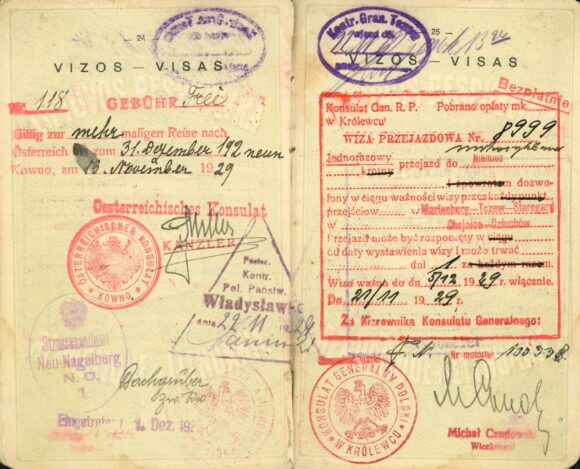 24
VIZOS – VISAS
Nr. 118 GEBÜHR Frei
Giltig zur mehrmaligen Reise nach
Österreich bis zum 31. Dezember 192 neun
Kowno, am 13. November 1929
Oesterreichisches Konsulat
KANZLER
ÖSTERREICHISCHES KONSULAT
KOWNO
Poster.
Kontr.
Pol. Państw.
Władysław
dnia 22. 11 1929
Strassenzollamt
Neu-Nagelberg
N. Ö.
1
Eingetreten 1. Dez. 192
25
Kontr. Gran. Tczew
VIZOS – VISAS
Bezpłatnie
Konsulat Gen. R. P. Pobrano opłaty mk.
w Królewcu
WIZA PRZEJAZDOWA Nr. 8999
Jednorazowy
krotny przejazd do Niemiec
i zpowrotem dozwo-
lony w ciągu ważności wizy przez każdy punkt
przejściow. w Marienburg Tczew Starogard
Chojnice Człuchów
Przejazd może być rozpoczęty w ciągu
od daty wystawienia wizy i może trwać
dni 1 za każdym razem.
Wiza ważna do dn. 5/12 1929 r. włącznie.
Dn. 21/11 1929 r.
Za Kierownika Konsulatu Generalnego:
KONSULAT GENERALNY POLSKI
W KRÓLEWCU
Nr motoru
Michał
Wicekonsul